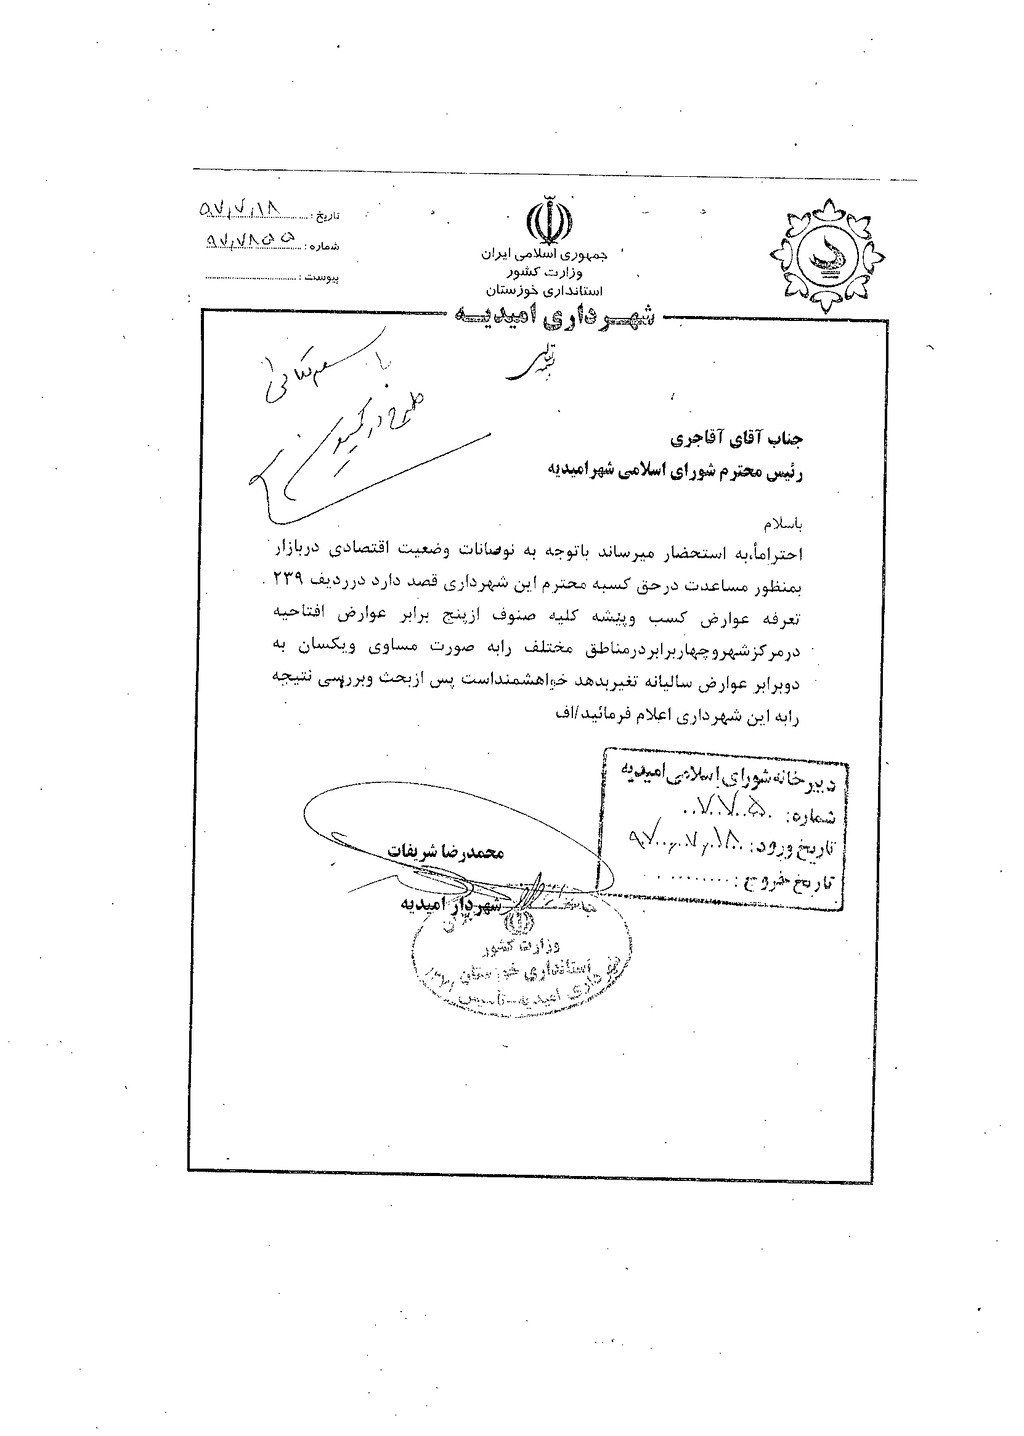 جمهوری اسلامی ایران
وزارت کشور
استانداری خوزستان
شهرداری امیدیه
تاریخ : ۹۷٫۷٫۱۸
شماره : ۹۷٫۷۸۵۵
پیوست :
بسمه تعالی
با سلام
طرح در کمیسیون
جناب آقای آقاجری
رئیس محترم شورای اسلامی شهر امیدیه
باسلام
احتراماً،به استحضار میرساند باتوجه به نوسانات وضعیت اقتصادی دربازار
بمنظور مساعدت درحق کسبه محترم این شهرداری قصد دارد درردیف ۲۳۹
تعرفه عوارض کسب وپیشه کلیه صنوف ازپنج برابر عوارض افتتاحیه
درمرکزشهروچهاربرابردرمناطق مختلف رابه صورت مساوی ویکسان به
دوبرابر عوارض سالیانه تغیربدهد خواهشمنداست پس ازبحث وبررسی نتیجه
رابه این شهرداری اعلام فرمائید/اف
دبیرخانه شورای اسلامی امیدیه
شماره: ۷۷۵
تاریخ ورود: ۹۷٫۷٫۱۸
تاریخ خروج :
محمدرضا شریفات
شهردار امیدیه
وزارت کشور
استانداری خوزستان
شهرداری امیدیه-تأسیس